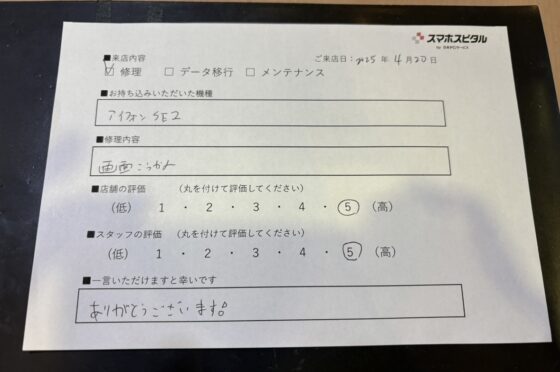 スマホスピタル
■来店内容
ご来店日：2025 年 4 月 20 日
☑ 修理 □ データ移行 □ メンテナンス
■お持ち込みいただいた機種
アイフォン SE2
■修理内容
画面こうかん
■店舗の評価 （丸を付けて評価してください）
（低） 1 ・ 2 ・ 3 ・ 4 ・ 5 （高）
■スタッフの評価 （丸を付けて評価してください）
（低） 1 ・ 2 ・ 3 ・ 4 ・ 5 （高）
■一言いただけますと幸いです
ありがとうございます。